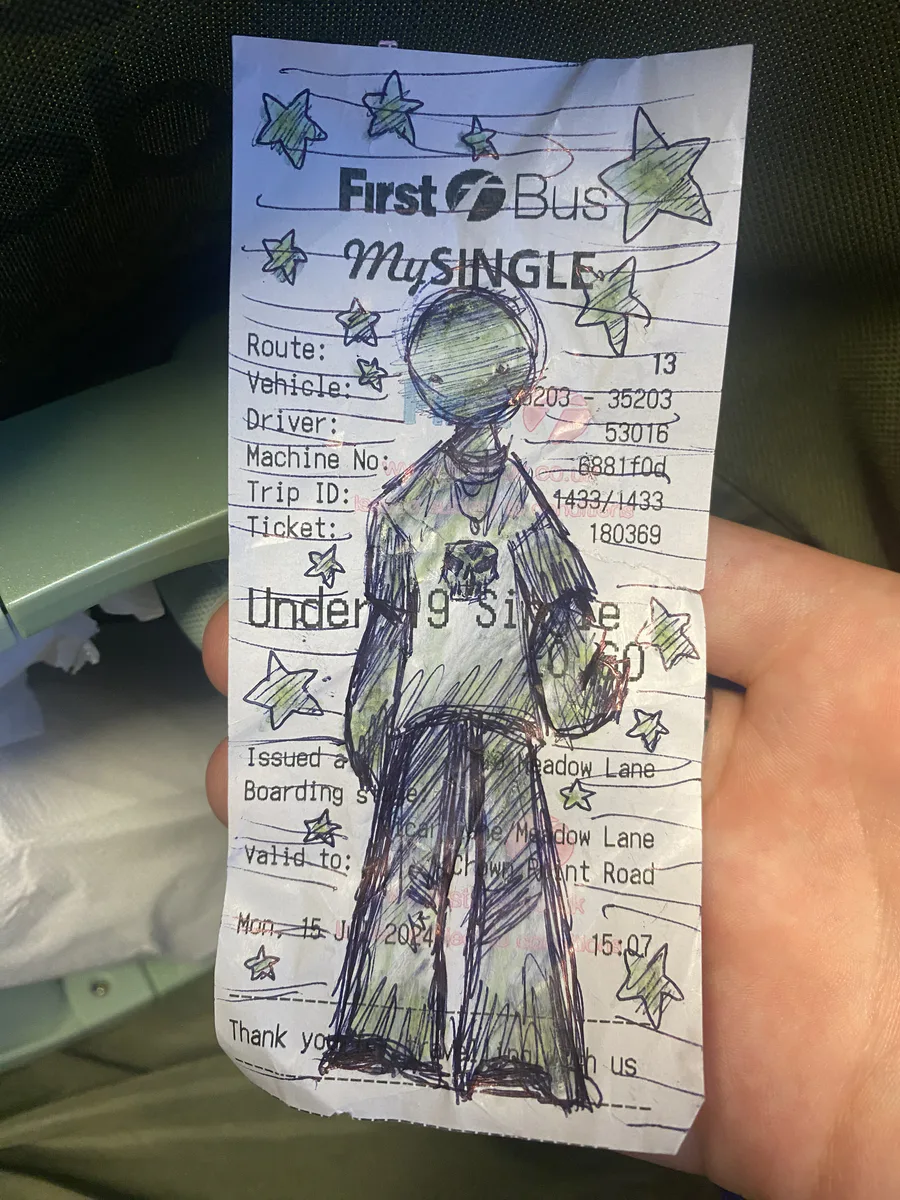 First Bus
mySINGLE
Route: 13
Vehicle: 35203 - 35203
Driver: 53016
Machine No: 6881f0d
Trip ID: 1433/1433
Ticket: 180369
Under 19 Single
Issued Meadow Lane
Boarding
Meadow Lane
Valid to: Crown Point Road
Mon, 15 2024 15:07
Thank you us